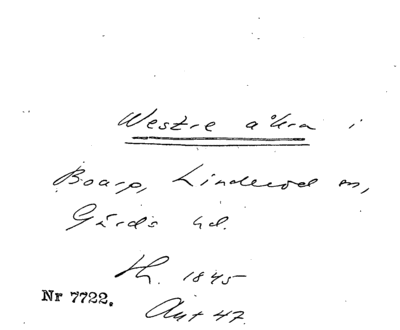 Westre åkra i
Boarp, Linderöd sn,
Gärds hd.
Th. 1845
Nr 7722.
Aut 47.